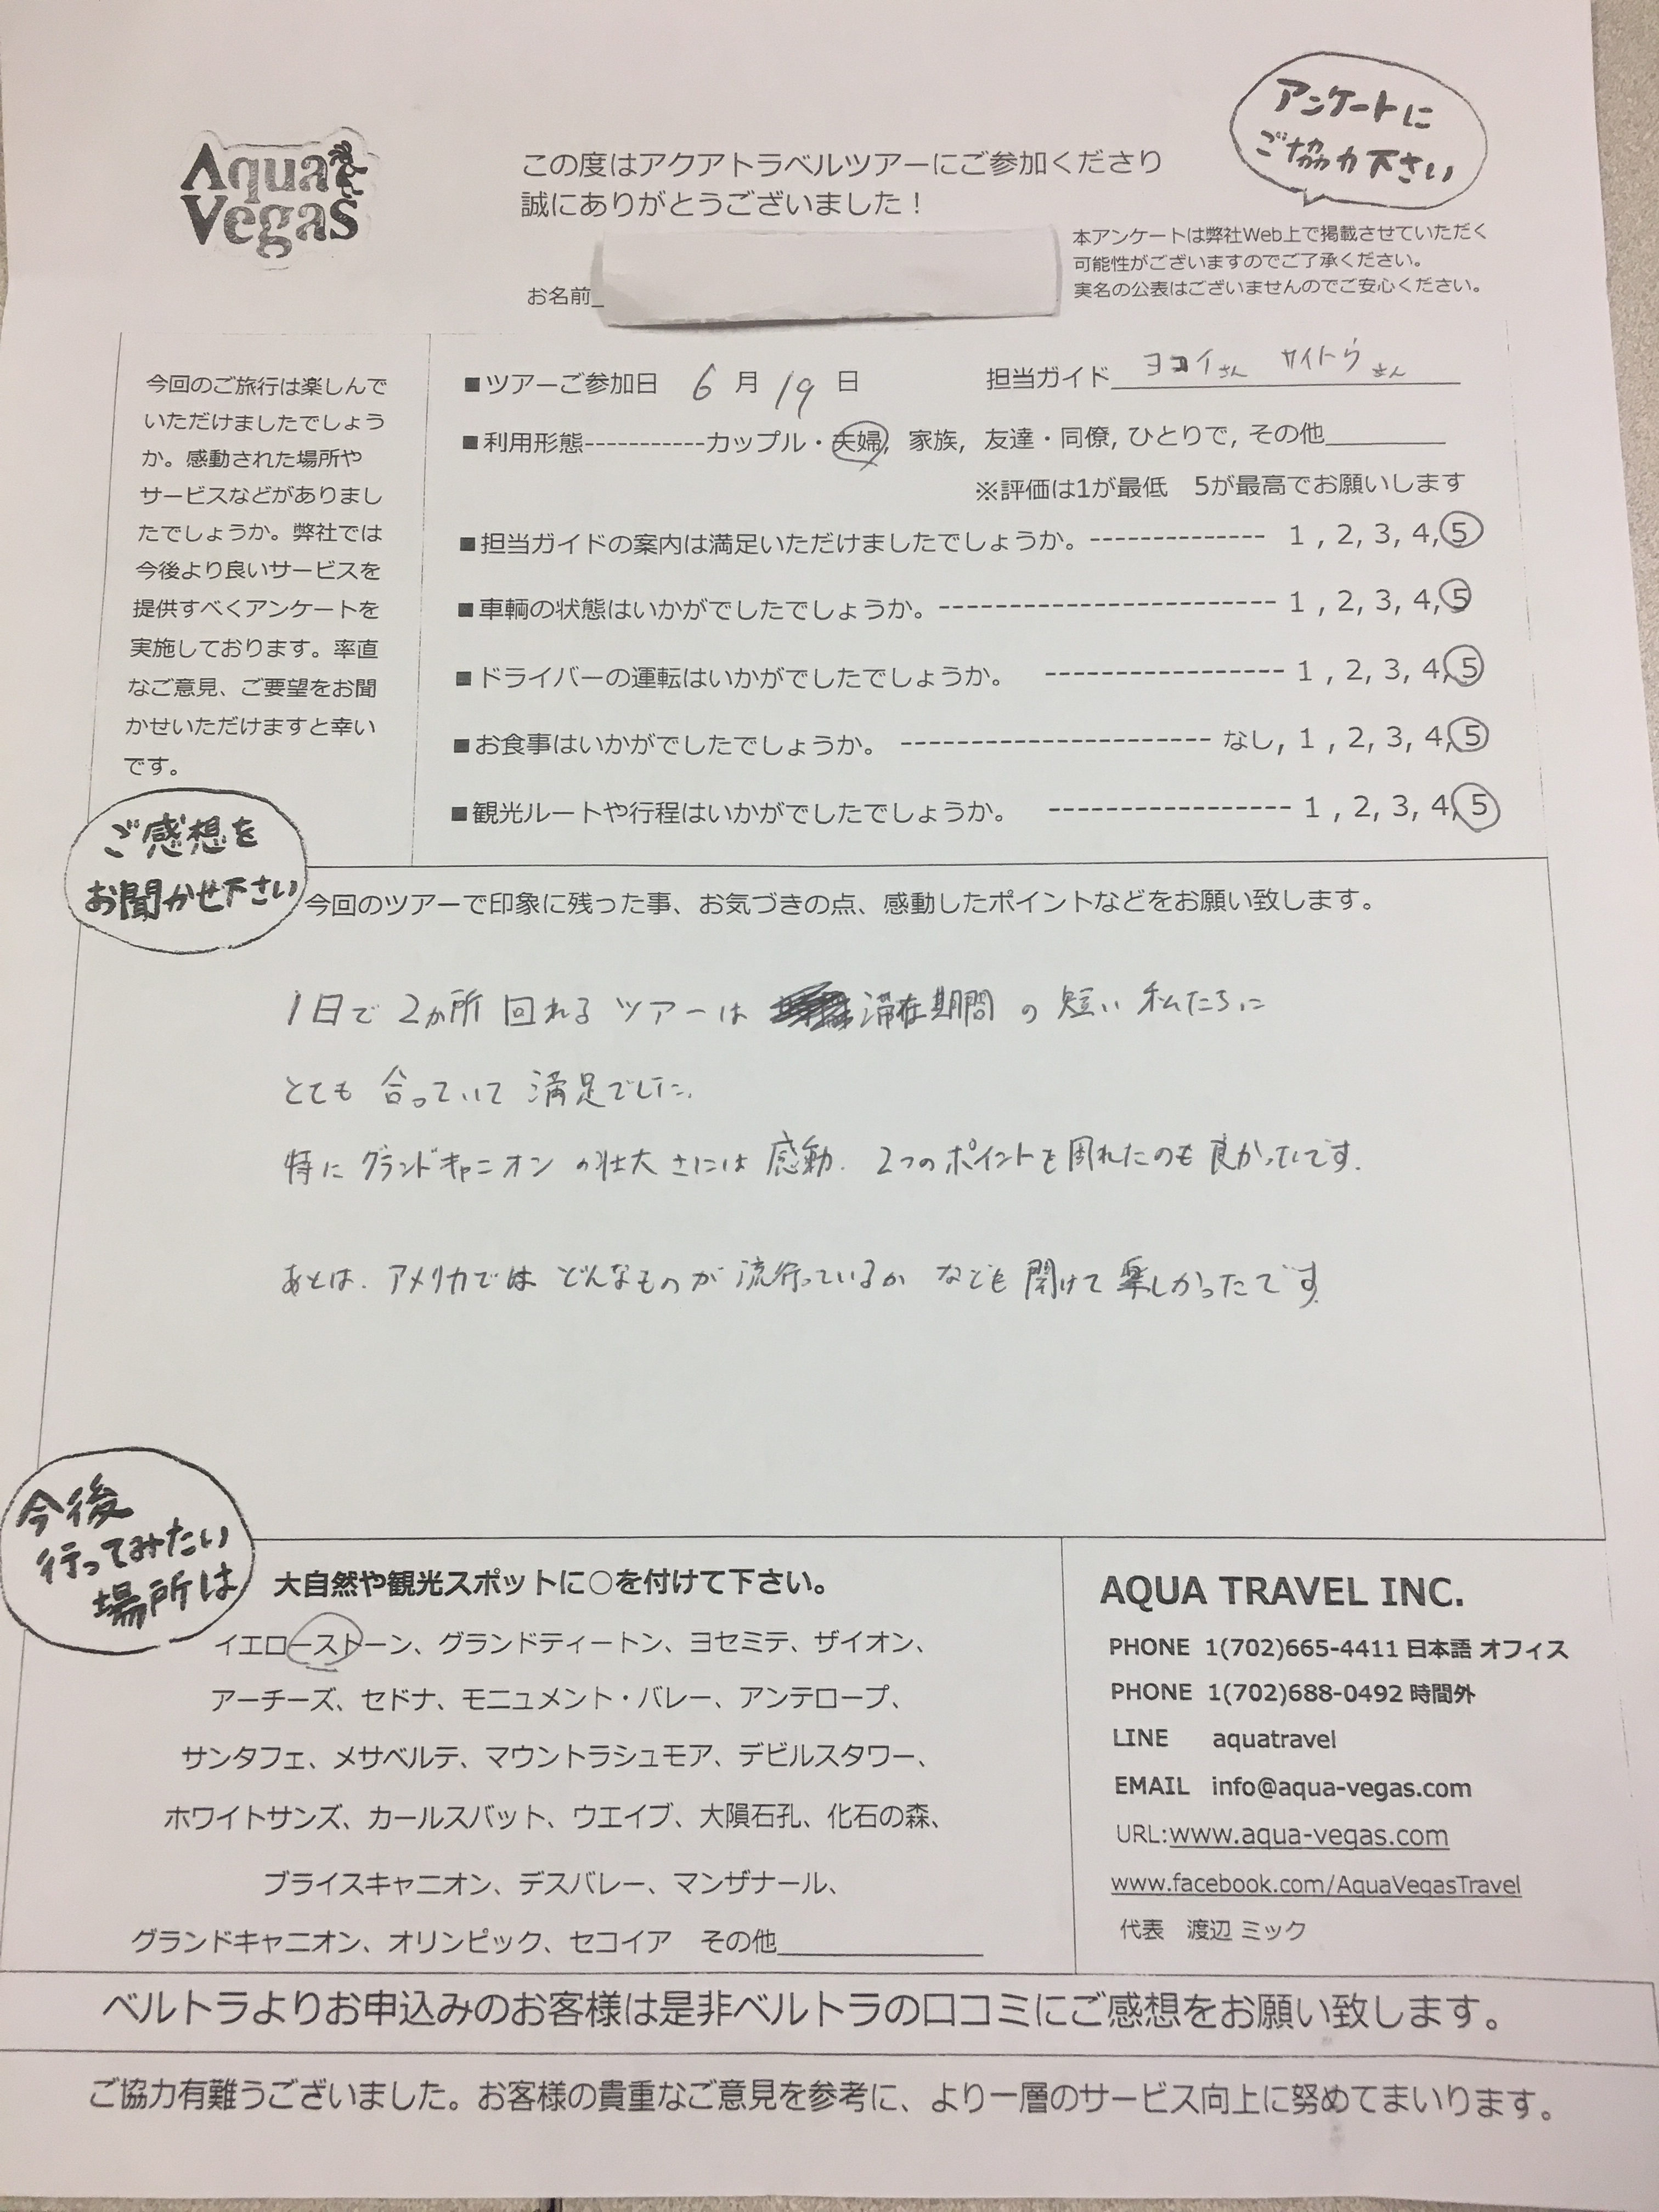 Aqua
Vegas
この度はアクアトラベルツアーにご参加くださり
誠にありがとうございました！
アンケートに
ご協力下さい
本アンケートは弊社Web上で掲載させていただく
可能性がございますのでご了承ください。
実名の公表はございませんのでご安心ください。
お名前
今回のご旅行は楽しんで
いただけましたでしょう
か。感動された場所や
サービスなどがありまし
たでしょうか。弊社では
今後より良いサービスを
提供すべくアンケートを
実施しております。率直
なご意見、ご要望をお聞
かせいただけますと幸い
です。
■ツアーご参加日 6 月 19 日 担当ガイド ヨコイさん サイトウさん
■利用形態-----------カップル・夫婦, 家族, 友達・同僚, ひとりで, その他
※評価は1が最低 5が最高でお願いします
■担当ガイドの案内は満足いただけましたでしょうか。-------------- 1 , 2, 3, 4, 5
■車輌の状態はいかがでしたでしょうか。------------------------- 1 , 2, 3, 4, 5
■ドライバーの運転はいかがでしたでしょうか。 ------------------ 1 , 2, 3, 4, 5
■お食事はいかがでしたでしょうか。 ----------------------- なし, 1 , 2, 3, 4, 5
■観光ルートや行程はいかがでしたでしょうか。 ------------------ 1 , 2, 3, 4, 5
ご感想を
お聞かせ下さい
今回のツアーで印象に残った事、お気づきの点、感動したポイントなどをお願い致します。
1日で2か所回れるツアーは 滞在期間の短い私たちに
とても合っていて満足でした。
特にグランドキャニオンの壮大さには感動. 2つのポイントを周れたのも良かったです.
あとは、アメリカではどんなものが流行っているかなども聞けて楽しかったです.
今後
行ってみたい
場所は
大自然や観光スポットに○を付けて下さい。
イエローストーン、グランドティートン、ヨセミテ、ザイオン、
アーチーズ、セドナ、モニュメント・バレー、アンテロープ、
サンタフェ、メサベルテ、マウントラシュモア、デビルスタワー、
ホワイトサンズ、カールスバット、ウエイブ、大隕石孔、化石の森、
ブライスキャニオン、デスバレー、マンザナール、
グランドキャニオン、オリンピック、セコイア その他
AQUA TRAVEL INC.
PHONE 1(702)665-4411 日本語 オフィス
PHONE 1(702)688-0492 時間外
LINE aquatravel
EMAIL info@aqua-vegas.com
URL:www.aqua-vegas.com
www.facebook.com/AquaVegasTravel
代表 渡辺 ミック
ベルトラよりお申込みのお客様は是非ベルトラの口コミにご感想をお願い致します。
ご協力有難うございました。お客様の貴重なご意見を参考に、より一層のサービス向上に努めてまいります。